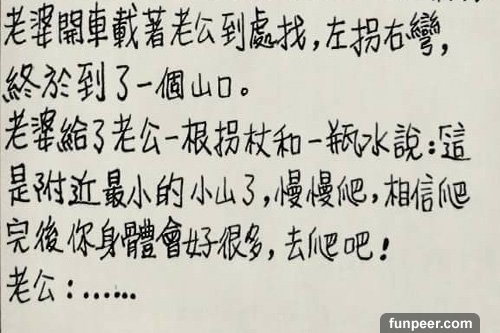 老婆開車載著老公到處找,左拐右彎,
終於到了一個山口。
老婆給了老公一根拐杖和一瓶水說:這
是附近最小的小山了,慢慢爬,相信爬
完後你身體會好很多,去爬吧!
老公:……
funpeer.com